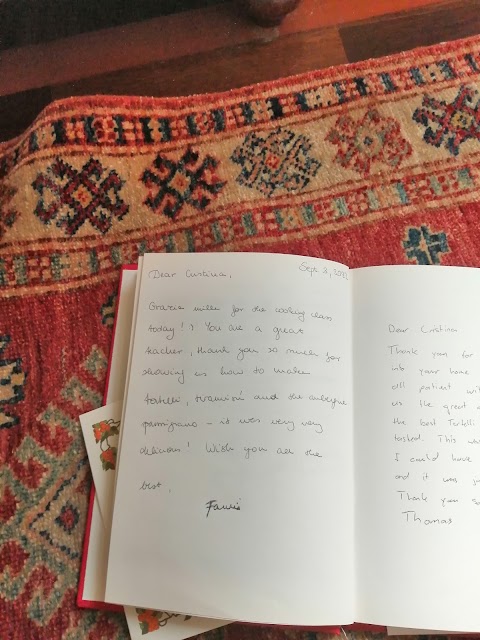 Dear Cristina,
Sept 2, 20
Grazie mille for the cooking class
today!! You are a great
teacher, thank you so much for
showing us how to make
tortelli, tiramisù and the aubergine
parmigiana – it was very very
delicious! Wish you all the
best,
Dear Cristina
Thank you for
into your home
all patient wit
us the great
the best Tortelli
tasted. This wa
I could have
and it was ju
Thank you so
Thomas